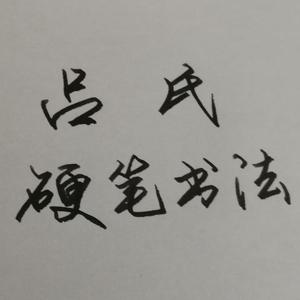 吕氏
硬笔书法